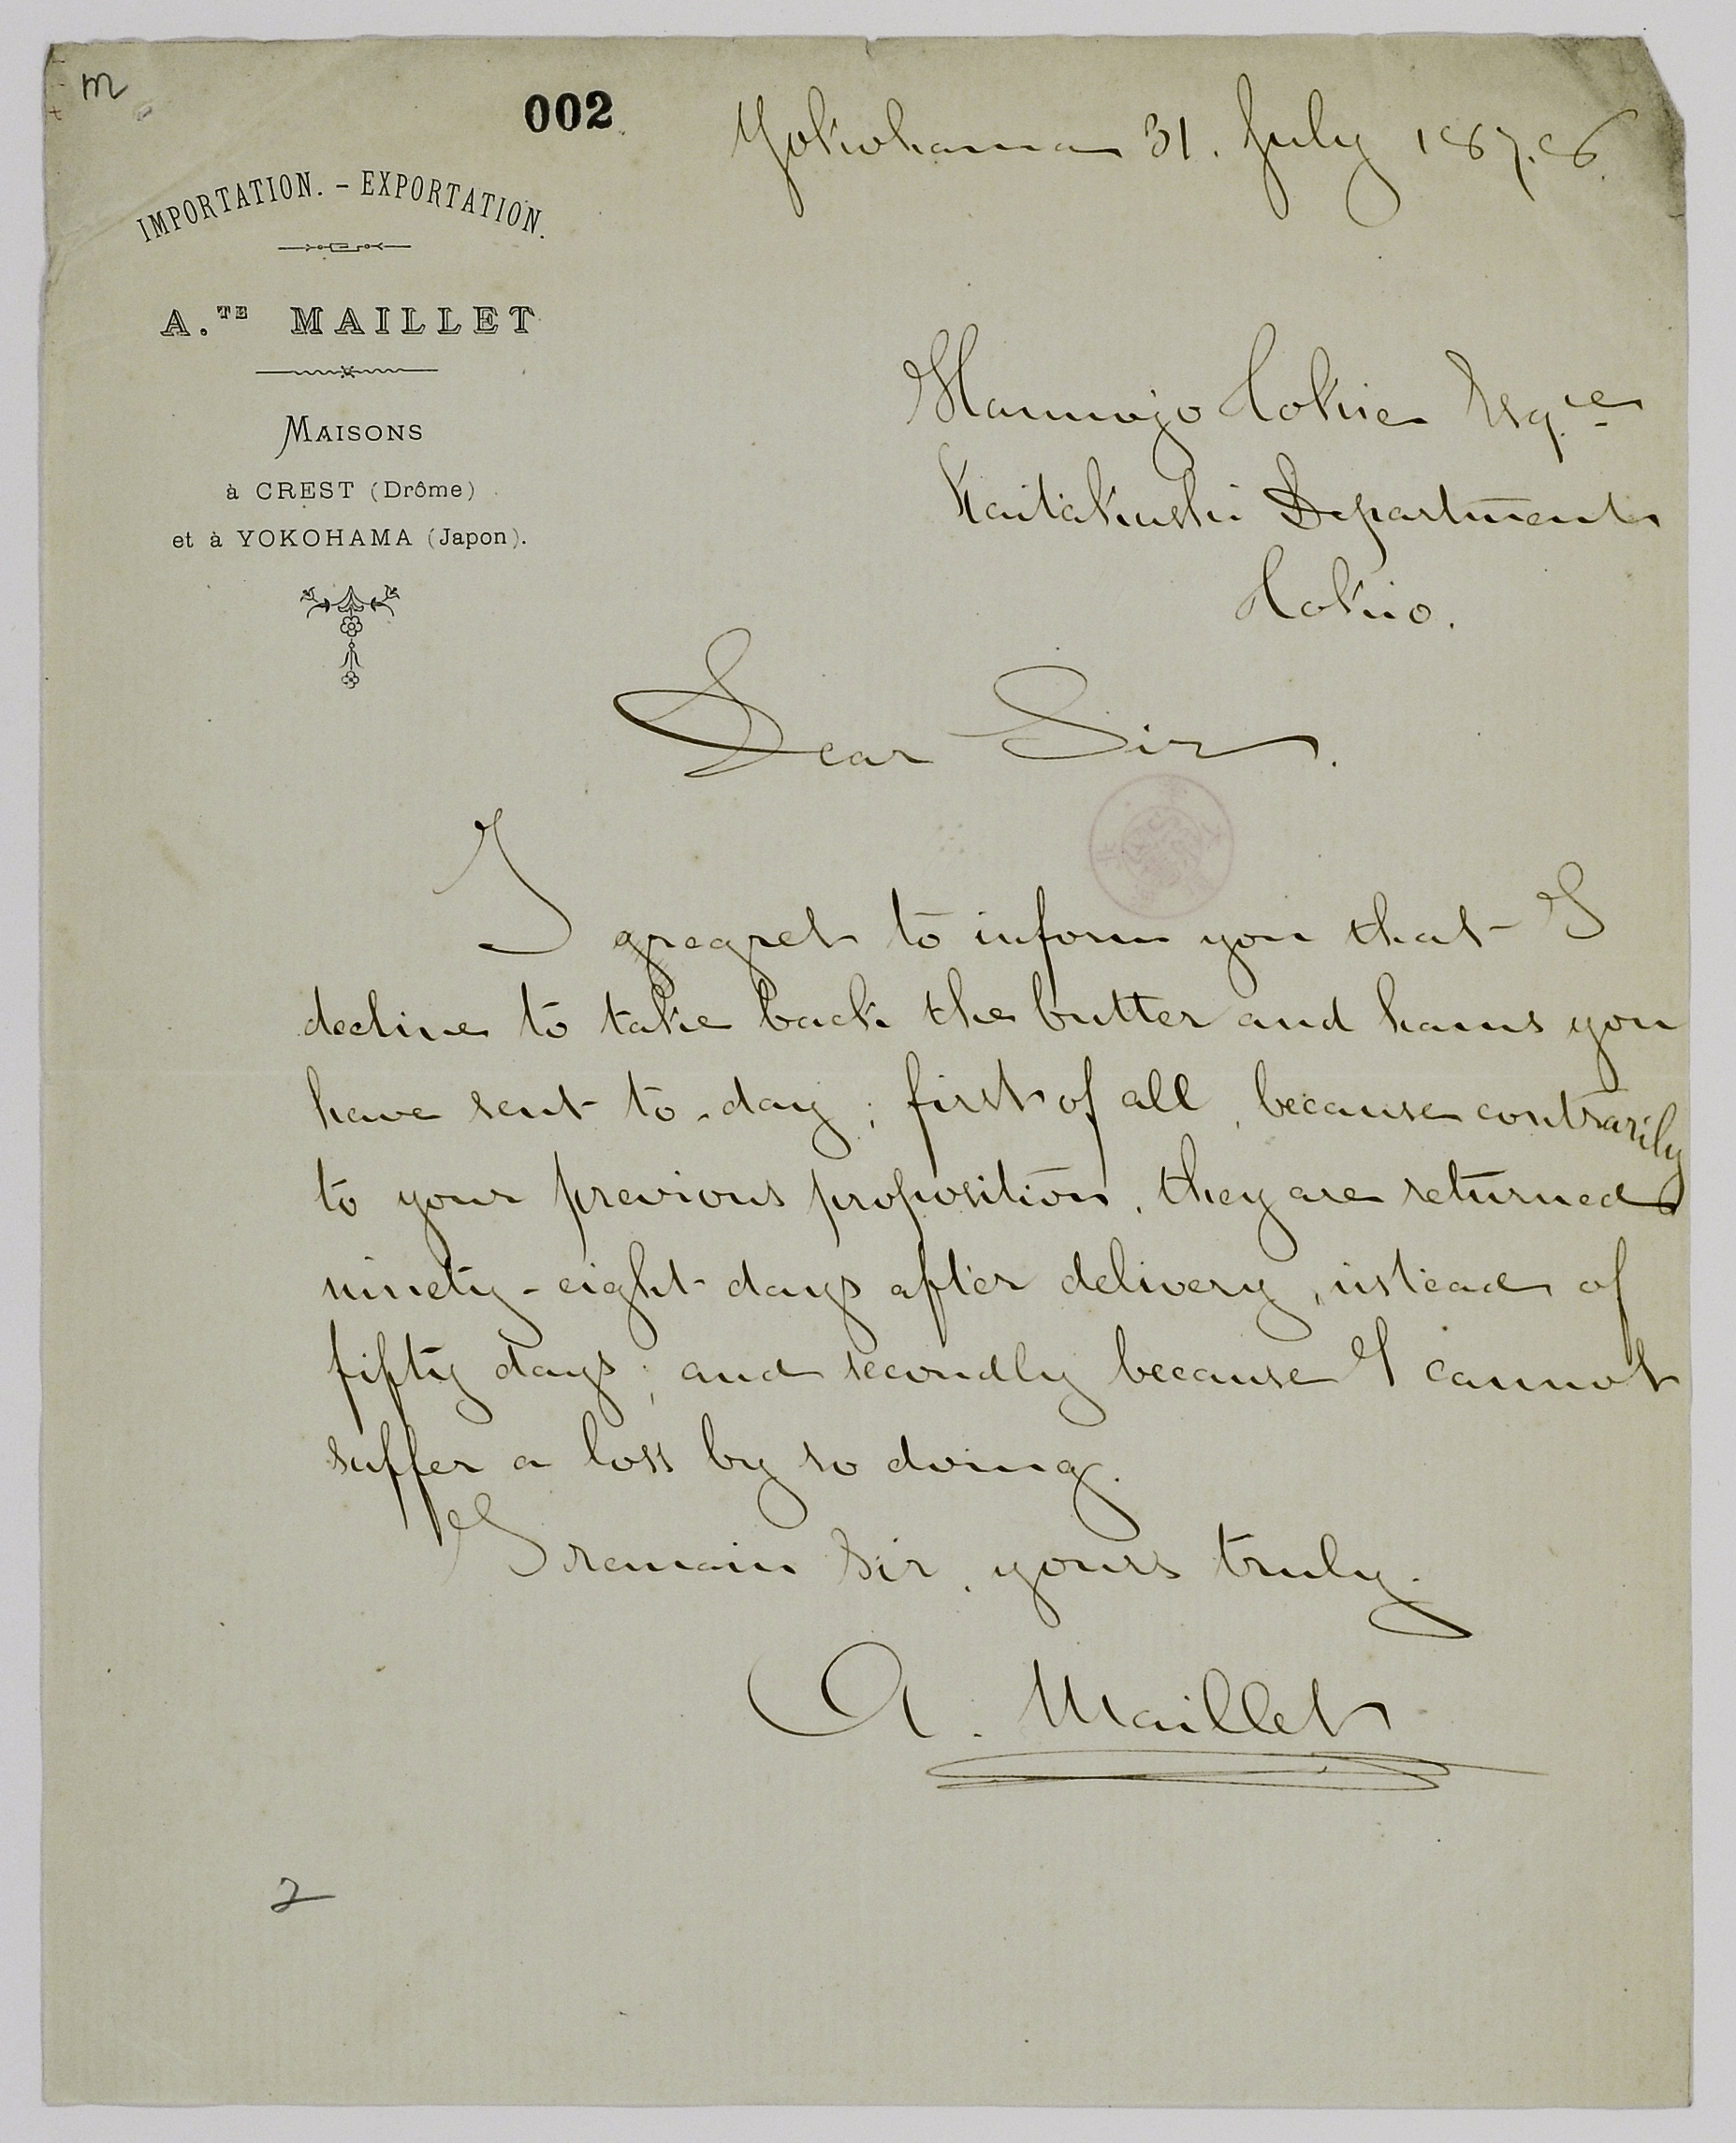 m
002
Yokohama 31. July 1878.
IMPORTATION. - EXPORTATION.
A.TE MAILLET
MAISONS
à CREST (Drôme)
et à YOKOHAMA (Japon).
Tokie Esqre
Kaitakushi Department
Tokio.
Dear Sir.
I gregret to inform you that I
decline to take back the butter and hams you
have sent to-day; first of all, because contrarily
to your previous proposition, they are returned
ninety-eight days after delivery, istead of
fifty days; and secondly because I cannot
suffer a loss by so doing.
I remain Sir, yours truly.
A. Maillet
2